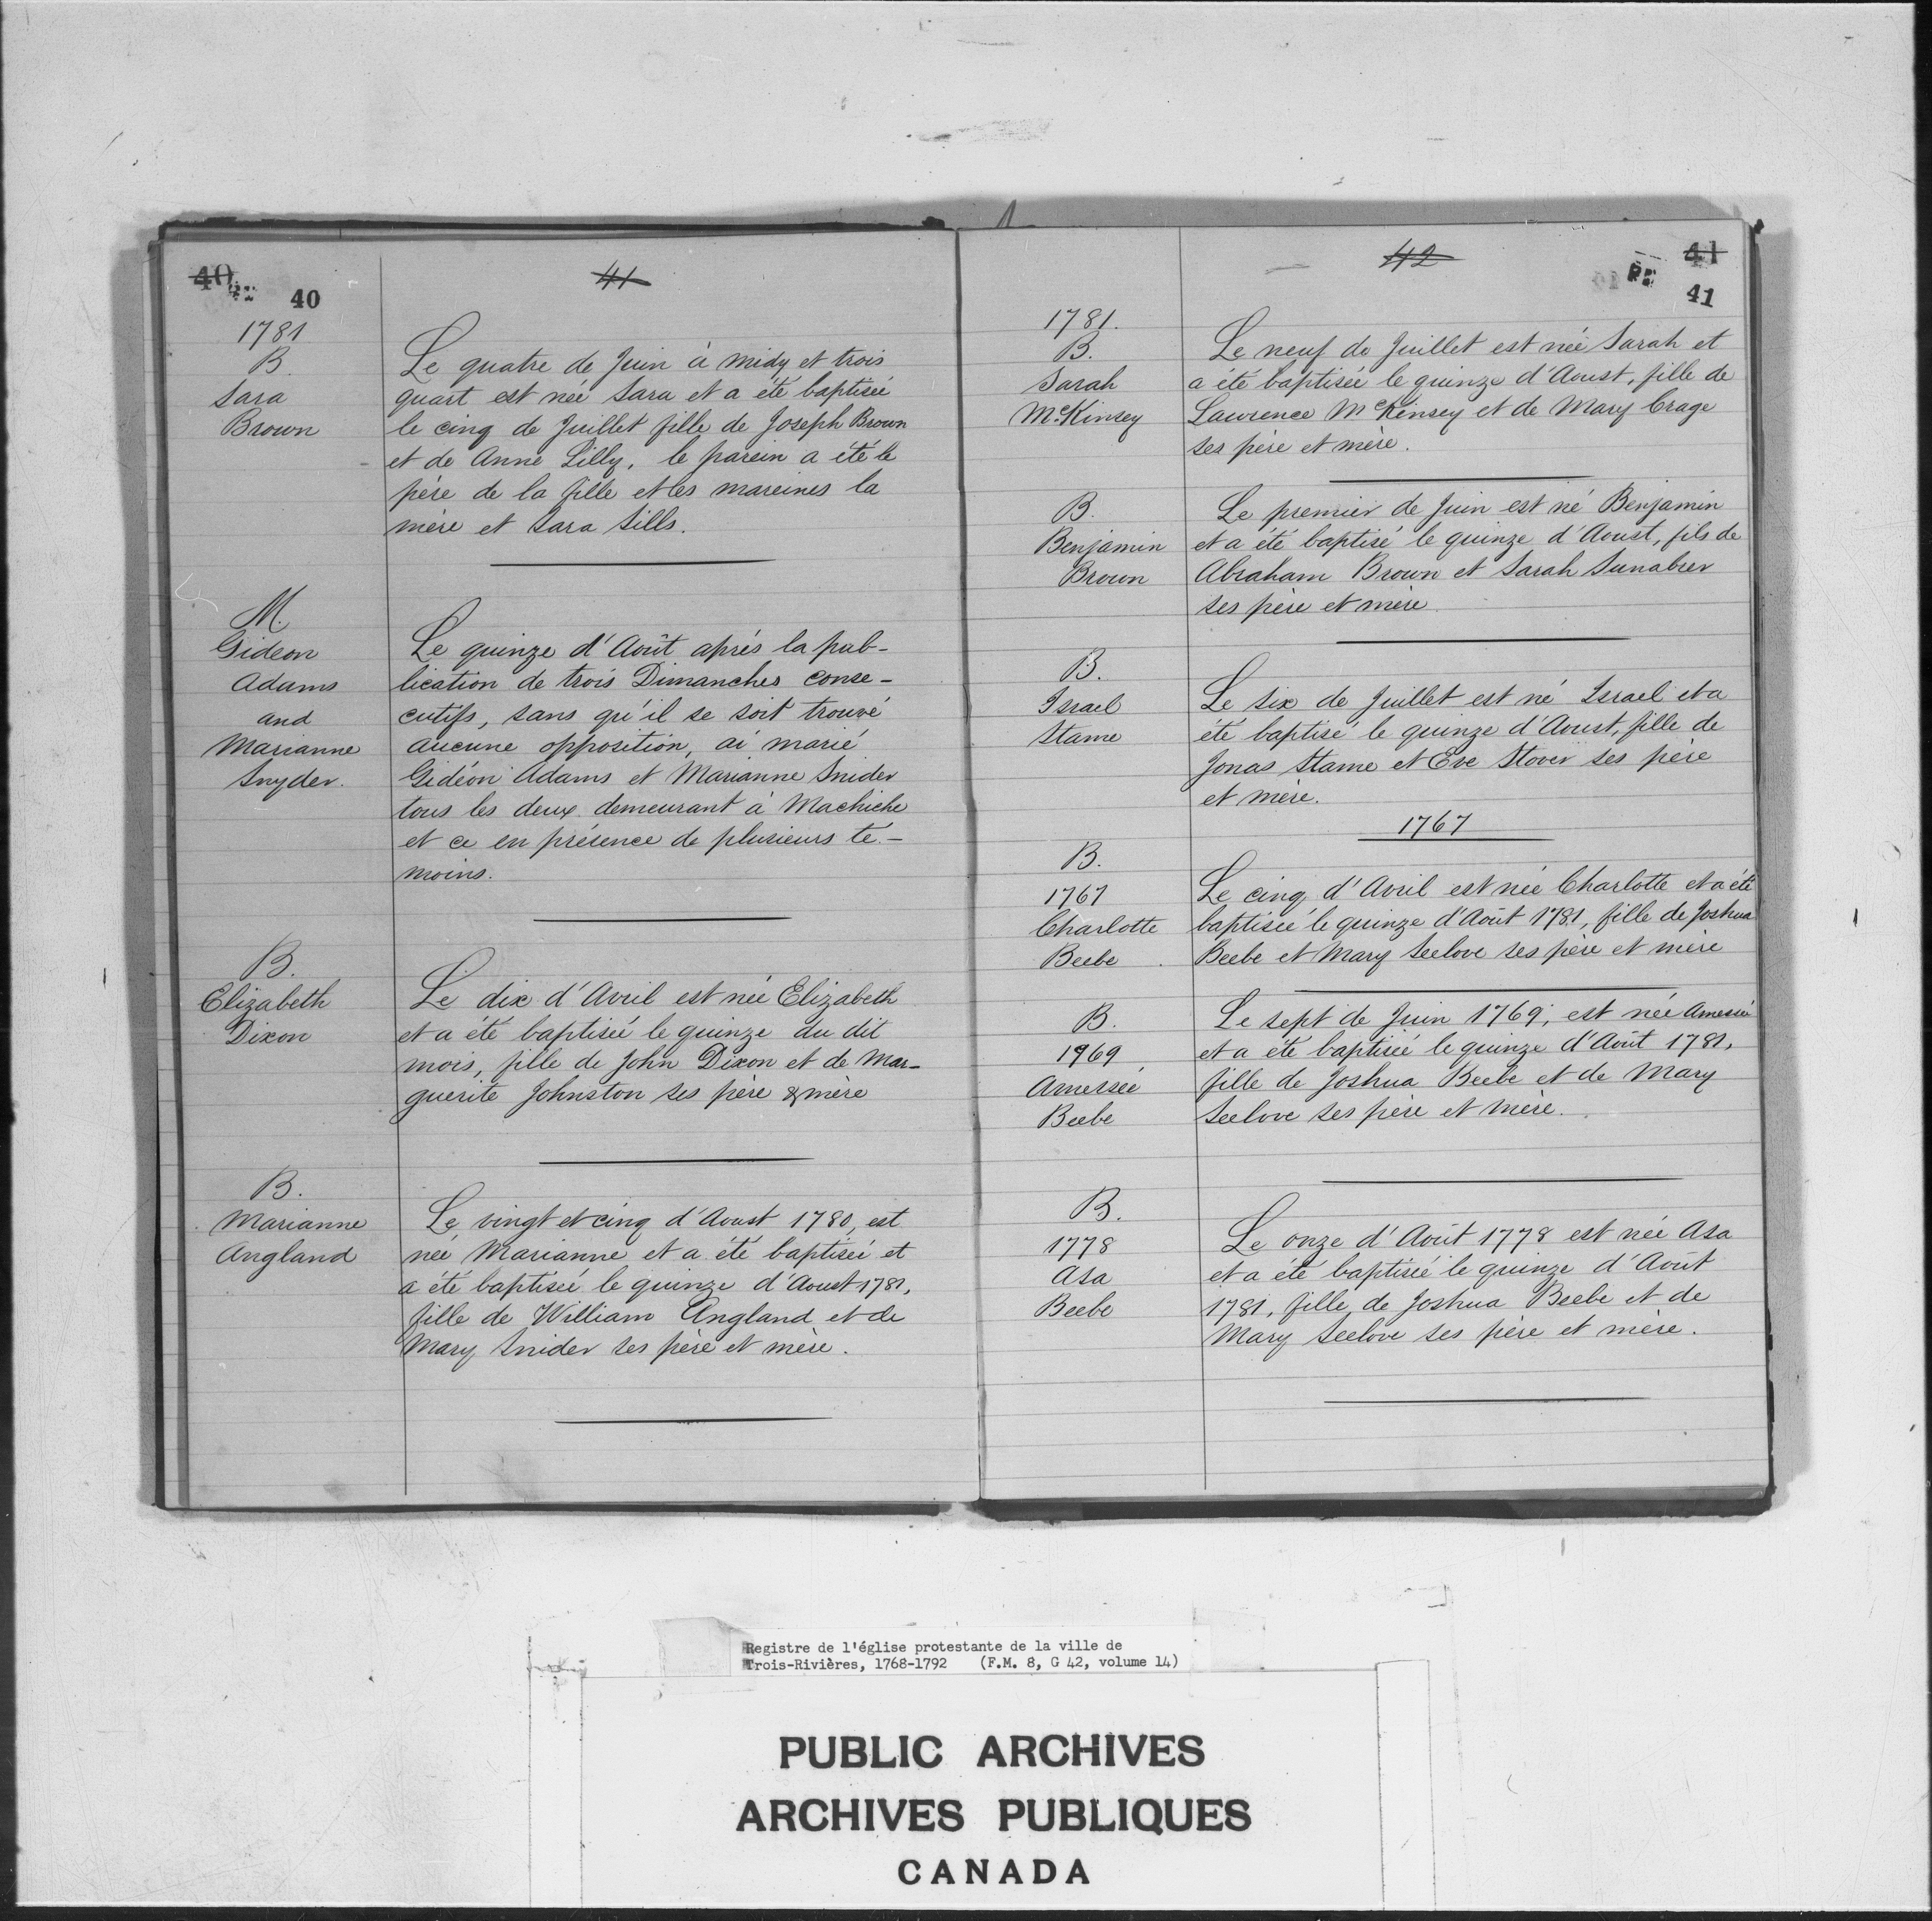 40
40
41
1781
B.
Sara
Brown
Le quatre de Juin à midy et trois
quart est née Sara et a été baptisée
le cinq de Juillet fille de Joseph Brown
et de Anne Lilly, le parein a été le
père de la fille et les mareines la
mère et Sara Sills.
M.
Gideon
Adams
and
Marianne
Snyder.
Le quinze d'Août après la pub-
lication de trois Dimanches conse-
cutifs, sans qu'il se soit trouvé
aucune opposition, ai marié
Gidéon Adams et Marianne Snider
tous les deux demeurant à Machiche
et ce en présence de plusieurs té-
moins.
B.
Elizabeth
Dixon
Le dix d'Avril est née Elizabeth
et a été baptisée le quinze du dit
mois, fille de John Dixon et de Mar-
guerite Johnston ses père & mère
B.
Marianne
Angland
Le vingt et cinq d'Aoust 1780, est
née Marianne et a été baptisée et
a été baptisée le quinze d'Aoust 1781,
fille de William Angland et de
Mary Snider ses père et mère.
42
41
41
1781.
B.
Sarah
McKinsey
Le neuf de Juillet est née Sarah et
a été baptisée le quinze d'Aoust, fille de
Lawrence McKinsey et de Mary Crage
ses père et mère.
B.
Benjamin
Brown
Le premier de Juin est né Benjamin
et a été baptisé le quinze d'Aoust, fils de
Abraham Brown et Sarah Sunabrer
ses père et mère
B.
Israel
Stame
Le six de Juillet est né Israel et a
été baptisé le quinze d'Aoust, fille de
Jonas Stame et Eve Stover ses père
et mère.
1767
B.
1767
Charlotte
Beebe
Le cinq d'Avril est née Charlotte et a été
baptisée le quinze d'Août 1781, fille de Joshua
Beebe et Mary Seelove ses père et mère
B.
1969
Amessée
Beebe
Le sept de Juin 1769, est née Amessée
et a été baptisée le quinze d'Août 1781,
fille de Joshua Beebe et de Mary
Seelove ses père et mère.
B.
1778
Asa
Beebe
Le onze d'Août 1778 est née Asa
et a été baptisée le quinze d'Août
1781, fille de Joshua Beebe et de
Mary Seelove ses père et mère.
Registre de l'église protestante de la ville de
Trois-Rivières, 1768-1792 (F.M. 8, G 42, volume 14)
PUBLIC ARCHIVES
ARCHIVES PUBLIQUES
CANADA